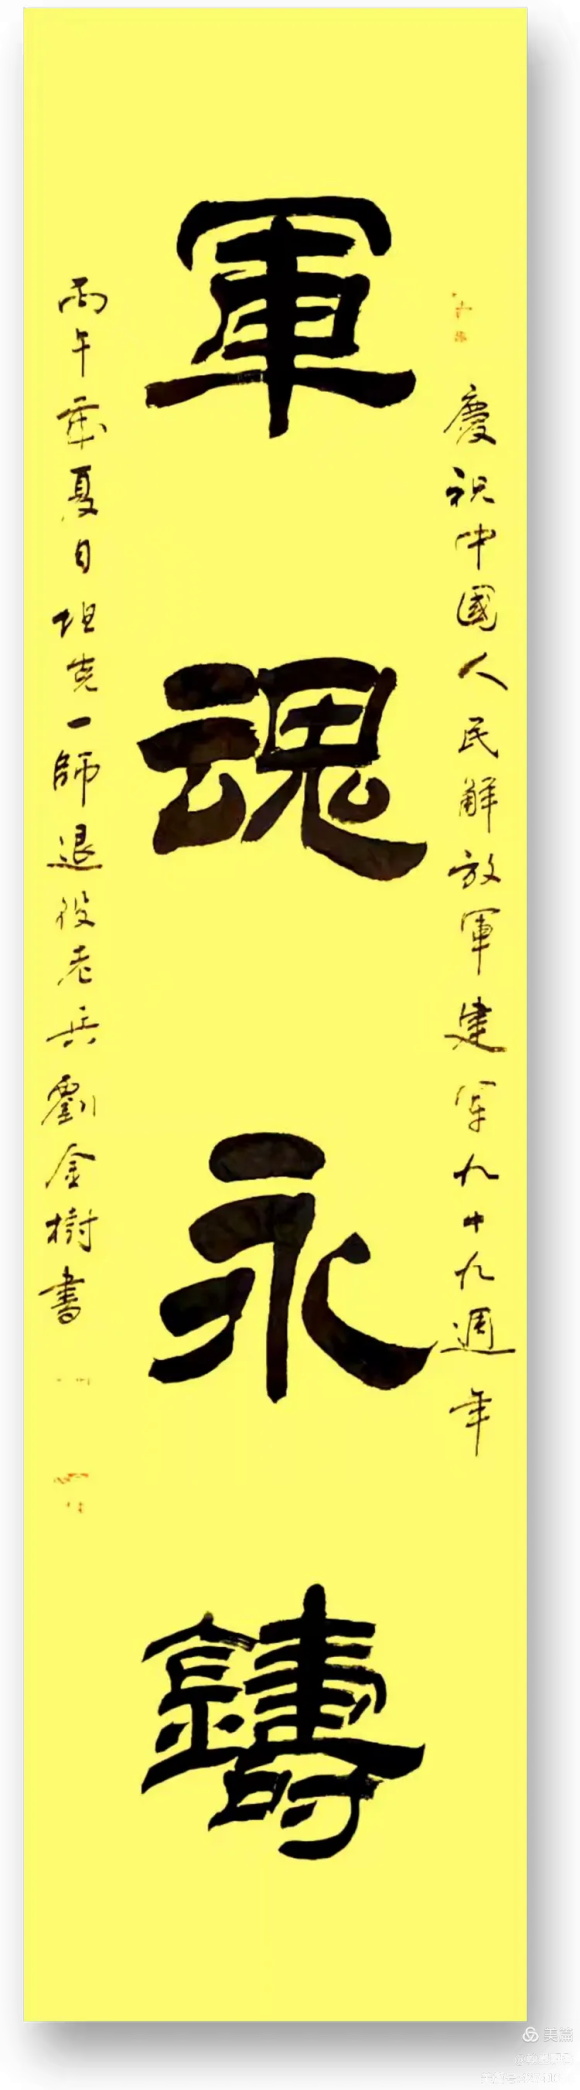 慶祝中國人民解放軍建军九十九週年
軍魂永鑄
丙午年夏日坦克一師退役老兵劉金樹書
美篇